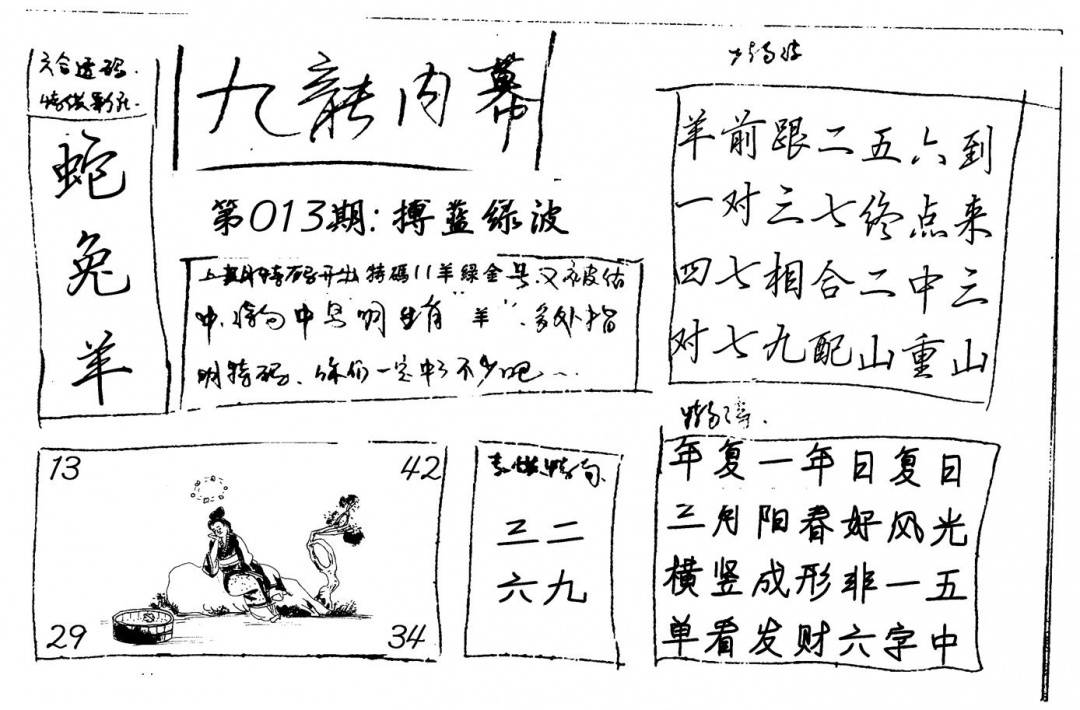 六合透码
蛇
兔
羊
九龍内幕
第013期:搏蓝绿波
上期特码开出特碼11羊綠金号,又被估
中,特句中号明生肖“羊”,多处指
明特码,你们一定中了不少吧…
羊前跟二五六到
一对三七终点来
四七相合二中三
对七九配山重山
年复一年日复日
三月阳春好风光
横竖成形非一五
单看发财六字中
13
42
29
34
三二
六九